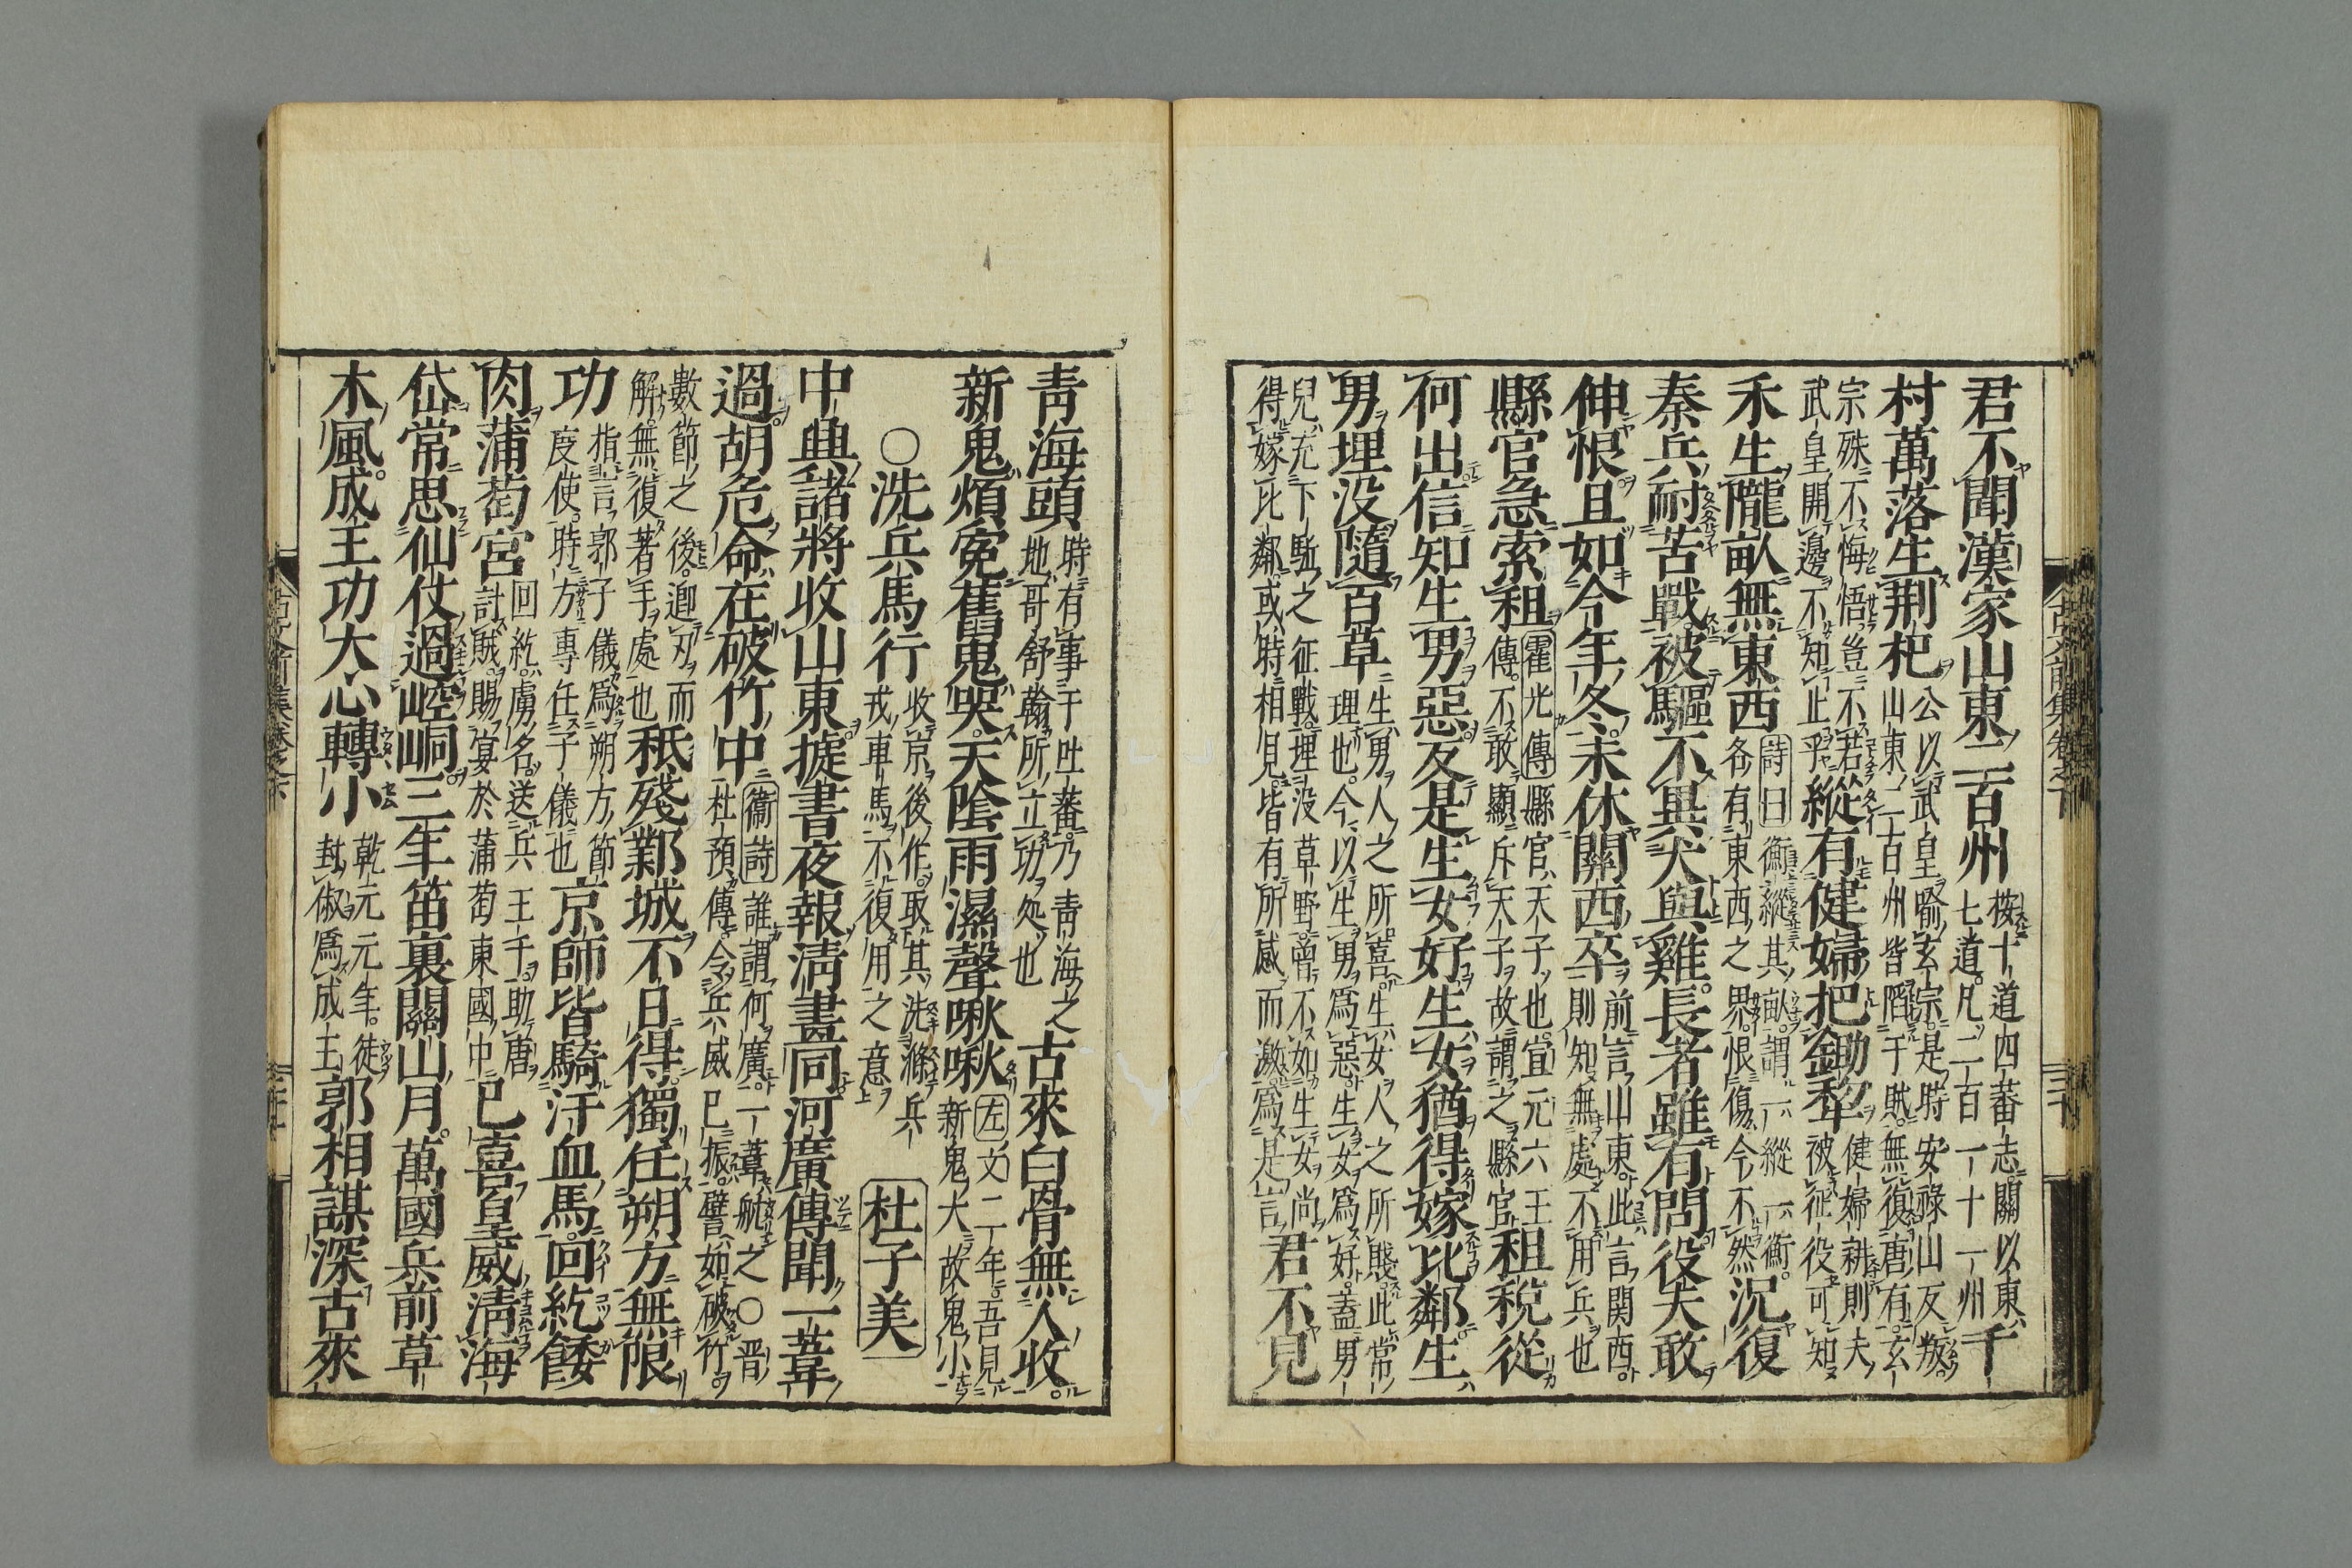 君不聞漢家山東二百州 桉十道四蕃志關以東 七道凡二百一十一州 千
村萬落生荆杞 公以武皇喻玄宗是時安祿山反叛 山東二百州皆陷于賊無復唐有玄
宗殊不悔悟豈不若 武皇開邊不知止乎 縱有健婦把鋤犂 健婦耕則夫 被征役可知
禾生隴畝無東西 詩曰衡縱其畝謂一縱一衡 各有東西之界恨傷今不然 況復
秦兵耐苦戰被驅不異犬與雞長者雖有問役夫敢
伸恨且如今年冬未休關西卒 前言山東此言関西 則知無處不用兵也
縣官急索租 霍光傳縣官天子也宣元六王 傳不敢顯斥天子故謂之縣官 租稅從
何出信知生男惡反是生女好生女猶得嫁比鄰生
男埋没隨百草 生男人之所喜生女人之所賤此常 理也今以生男爲惡生女爲好蓋男
兒充下之征戰埋没草野曾不如生女尚 得嫁比鄰或時相見皆有所感而激爲是言 君不見
青海頭 時有事于吐蕃乃青海之 地哥舒翰所立功処也 古來白骨無人收
新鬼煩冤舊鬼哭天陰雨濕聲啾啾 左文二年吾見 新鬼大故鬼小
○洗兵馬行 收京後作取其洗滌兵 戎車馬不復用之意 杜子美
中興諸將收山東捷書夜報淸晝同河廣傳聞一葦
過胡危命在破竹中 衞詩誰謂河廣一葦航之○晋 杜預傳令兵威已振譬如破竹
數節之後迎刃而 解無復著手處也 秪殘鄴城不日得獨任朔方無限
功 指言郭子儀爲朔方節 度使時方專任子儀也 京師皆騎汗血馬回紇餧
肉蒲萄宮 回紇虜名送兵五千助唐 討賊賜宴於蒲萄東國中 已喜皇威淸海
岱常思仙仗過崆峒三年笛裏關山月萬國兵前草
木風成王功大心轉小 乾元元年徒 封俶爲成王 郭相謀深古來